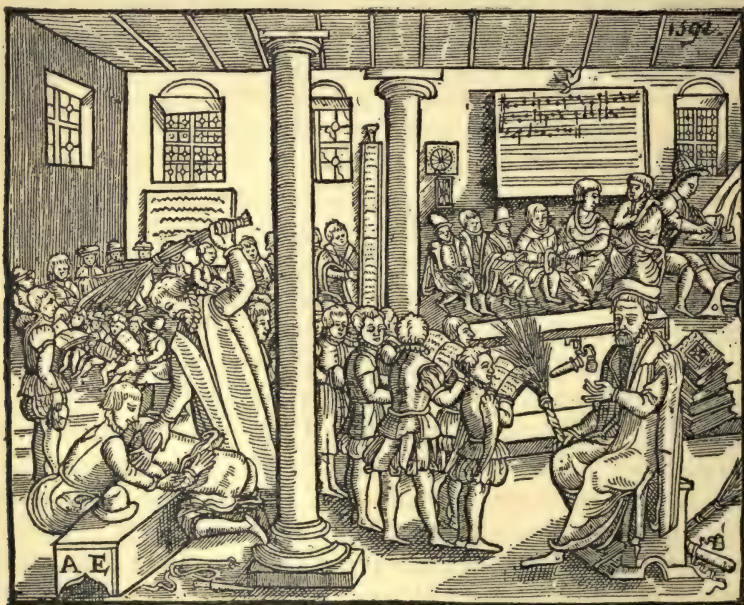 1592.
A E